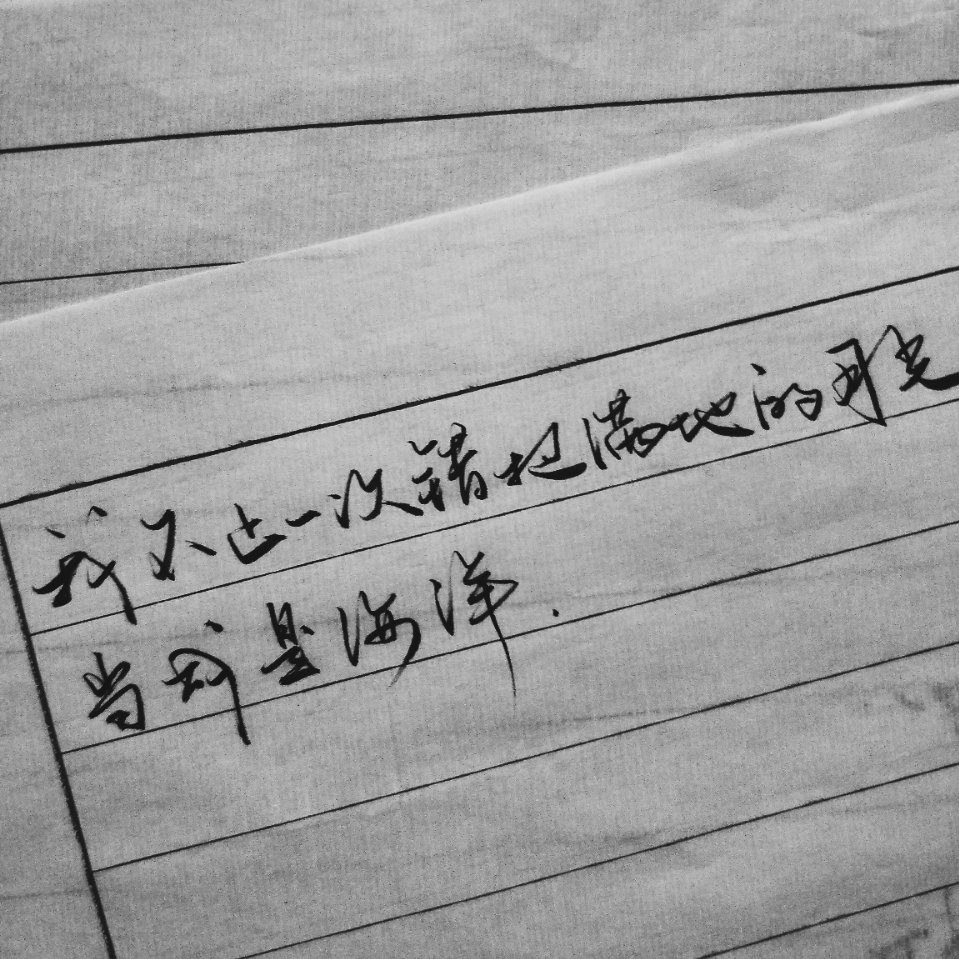 我不止一次错把满地的月光
当成是海洋.